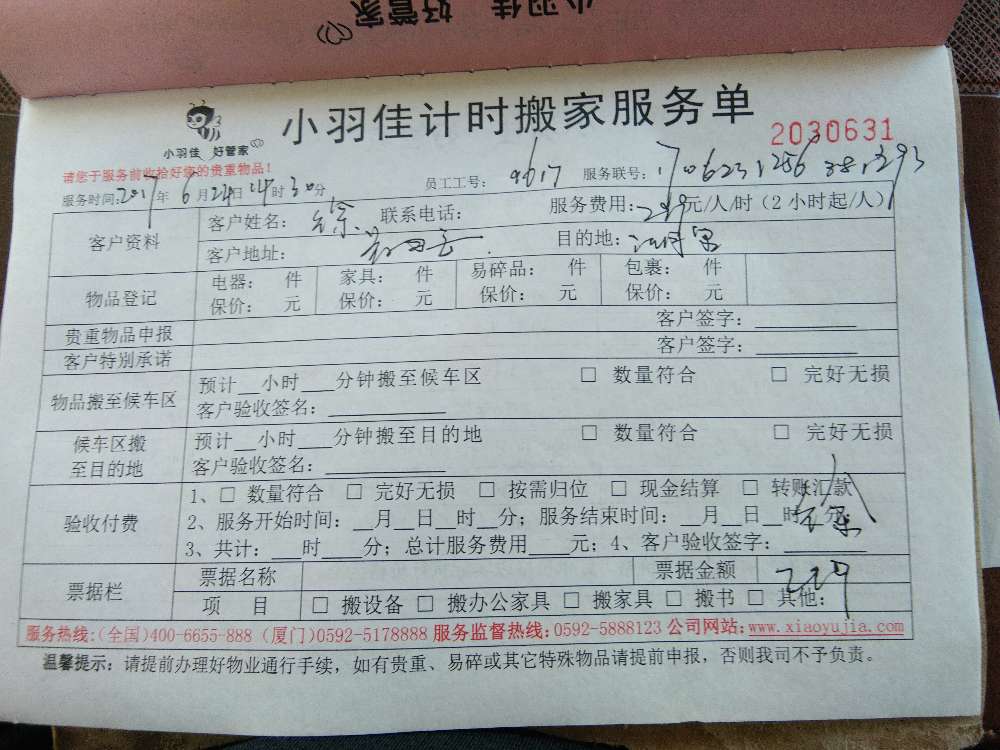 小羽佳 好管家
小羽佳 好管家
小羽佳计时搬家服务单
2030631
请您于服务前收拾好您的贵重物品!
服务时间:2017年6月24日14时30分 员工工号: 9617 服务联号:
客户资料 客户姓名: 徐 联系电话: 服务费用: 元/人/时(2小时起/人)
客户地址: 目的地:
物品登记 电器: 件 家具: 件 易碎品: 件 包裹: 件
保价: 元 保价: 元 保价: 元 保价: 元
贵重物品申报 客户签字:
客户特别承诺 客户签字:
物品搬至候车区 预计__小时__分钟搬至候车区 □ 数量符合 □ 完好无损
客户验收签名:
候车区搬至目的地 预计__小时__分钟搬至目的地 □ 数量符合 □ 完好无损
客户验收签名:
验收付费 1、□ 数量符合 □ 完好无损 □ 按需归位 □ 现金结算 □ 转账汇款
2、服务开始时间:__月__日__时__分;服务结束时间:__月__日__时__分
3、共计:__时__分;总计服务费用__元;4、客户验收签字:
票据栏 票据名称 票据金额
项 目 □ 搬设备 □ 搬办公家具 □ 搬家具 □ 搬书 □ 其他:
服务热线:(全国)400-6655-888 (厦门)0592-5178888 服务监督热线:0592-5888123 公司网站:www.xiaoyujia.com
温馨提示:请提前办理好物业通行手续,如有贵重、易碎或其它特殊物品请提前申报,否则我司不予负责。